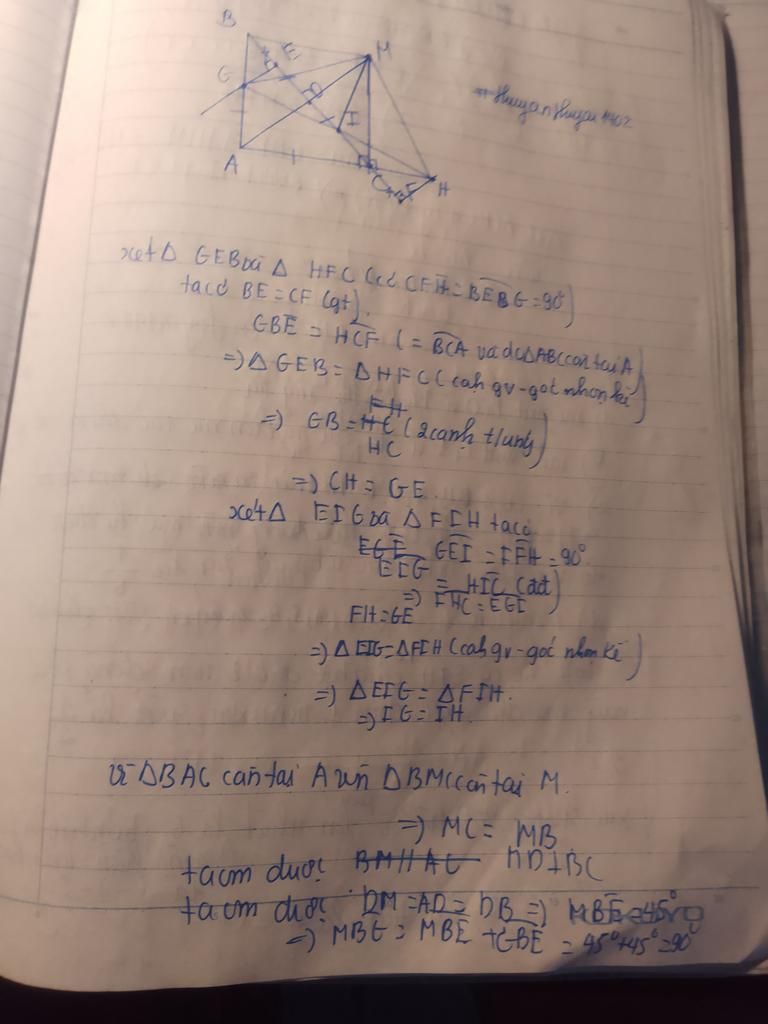 B
E
M
G
D
I
A
C
F
H
xét Δ GEB và Δ HFC (có CFH = BEG = 90°)
ta có BE = CF (gt).
GBE = HCF ( = BCA và do ΔABC cân tại A)
=) Δ GEB = Δ HFC (cạh gv-goc nhọn kề)
=) GB = HC (2 cạnh t/ưng)
=) CH = GE
xét Δ EIG và Δ FIH ta có
GEI = IFH = 90°
EIG = HIC (dd)
=) FHC = EGI
FH = GE
=) Δ EIG = Δ FIH (cah gv-goc nhọn kề)
=) Δ EIG = Δ FIH.
=) IG = IH.
vì ΔBAC cân tai A nên ΔBMC cân tai M.
=) MC = MB
ta cm dược BM//AC MD⊥BC
ta cm dược DM = AD = DB =) MBE = 45°
=) MBG = MBE + GBE = 45° + 45° = 90°